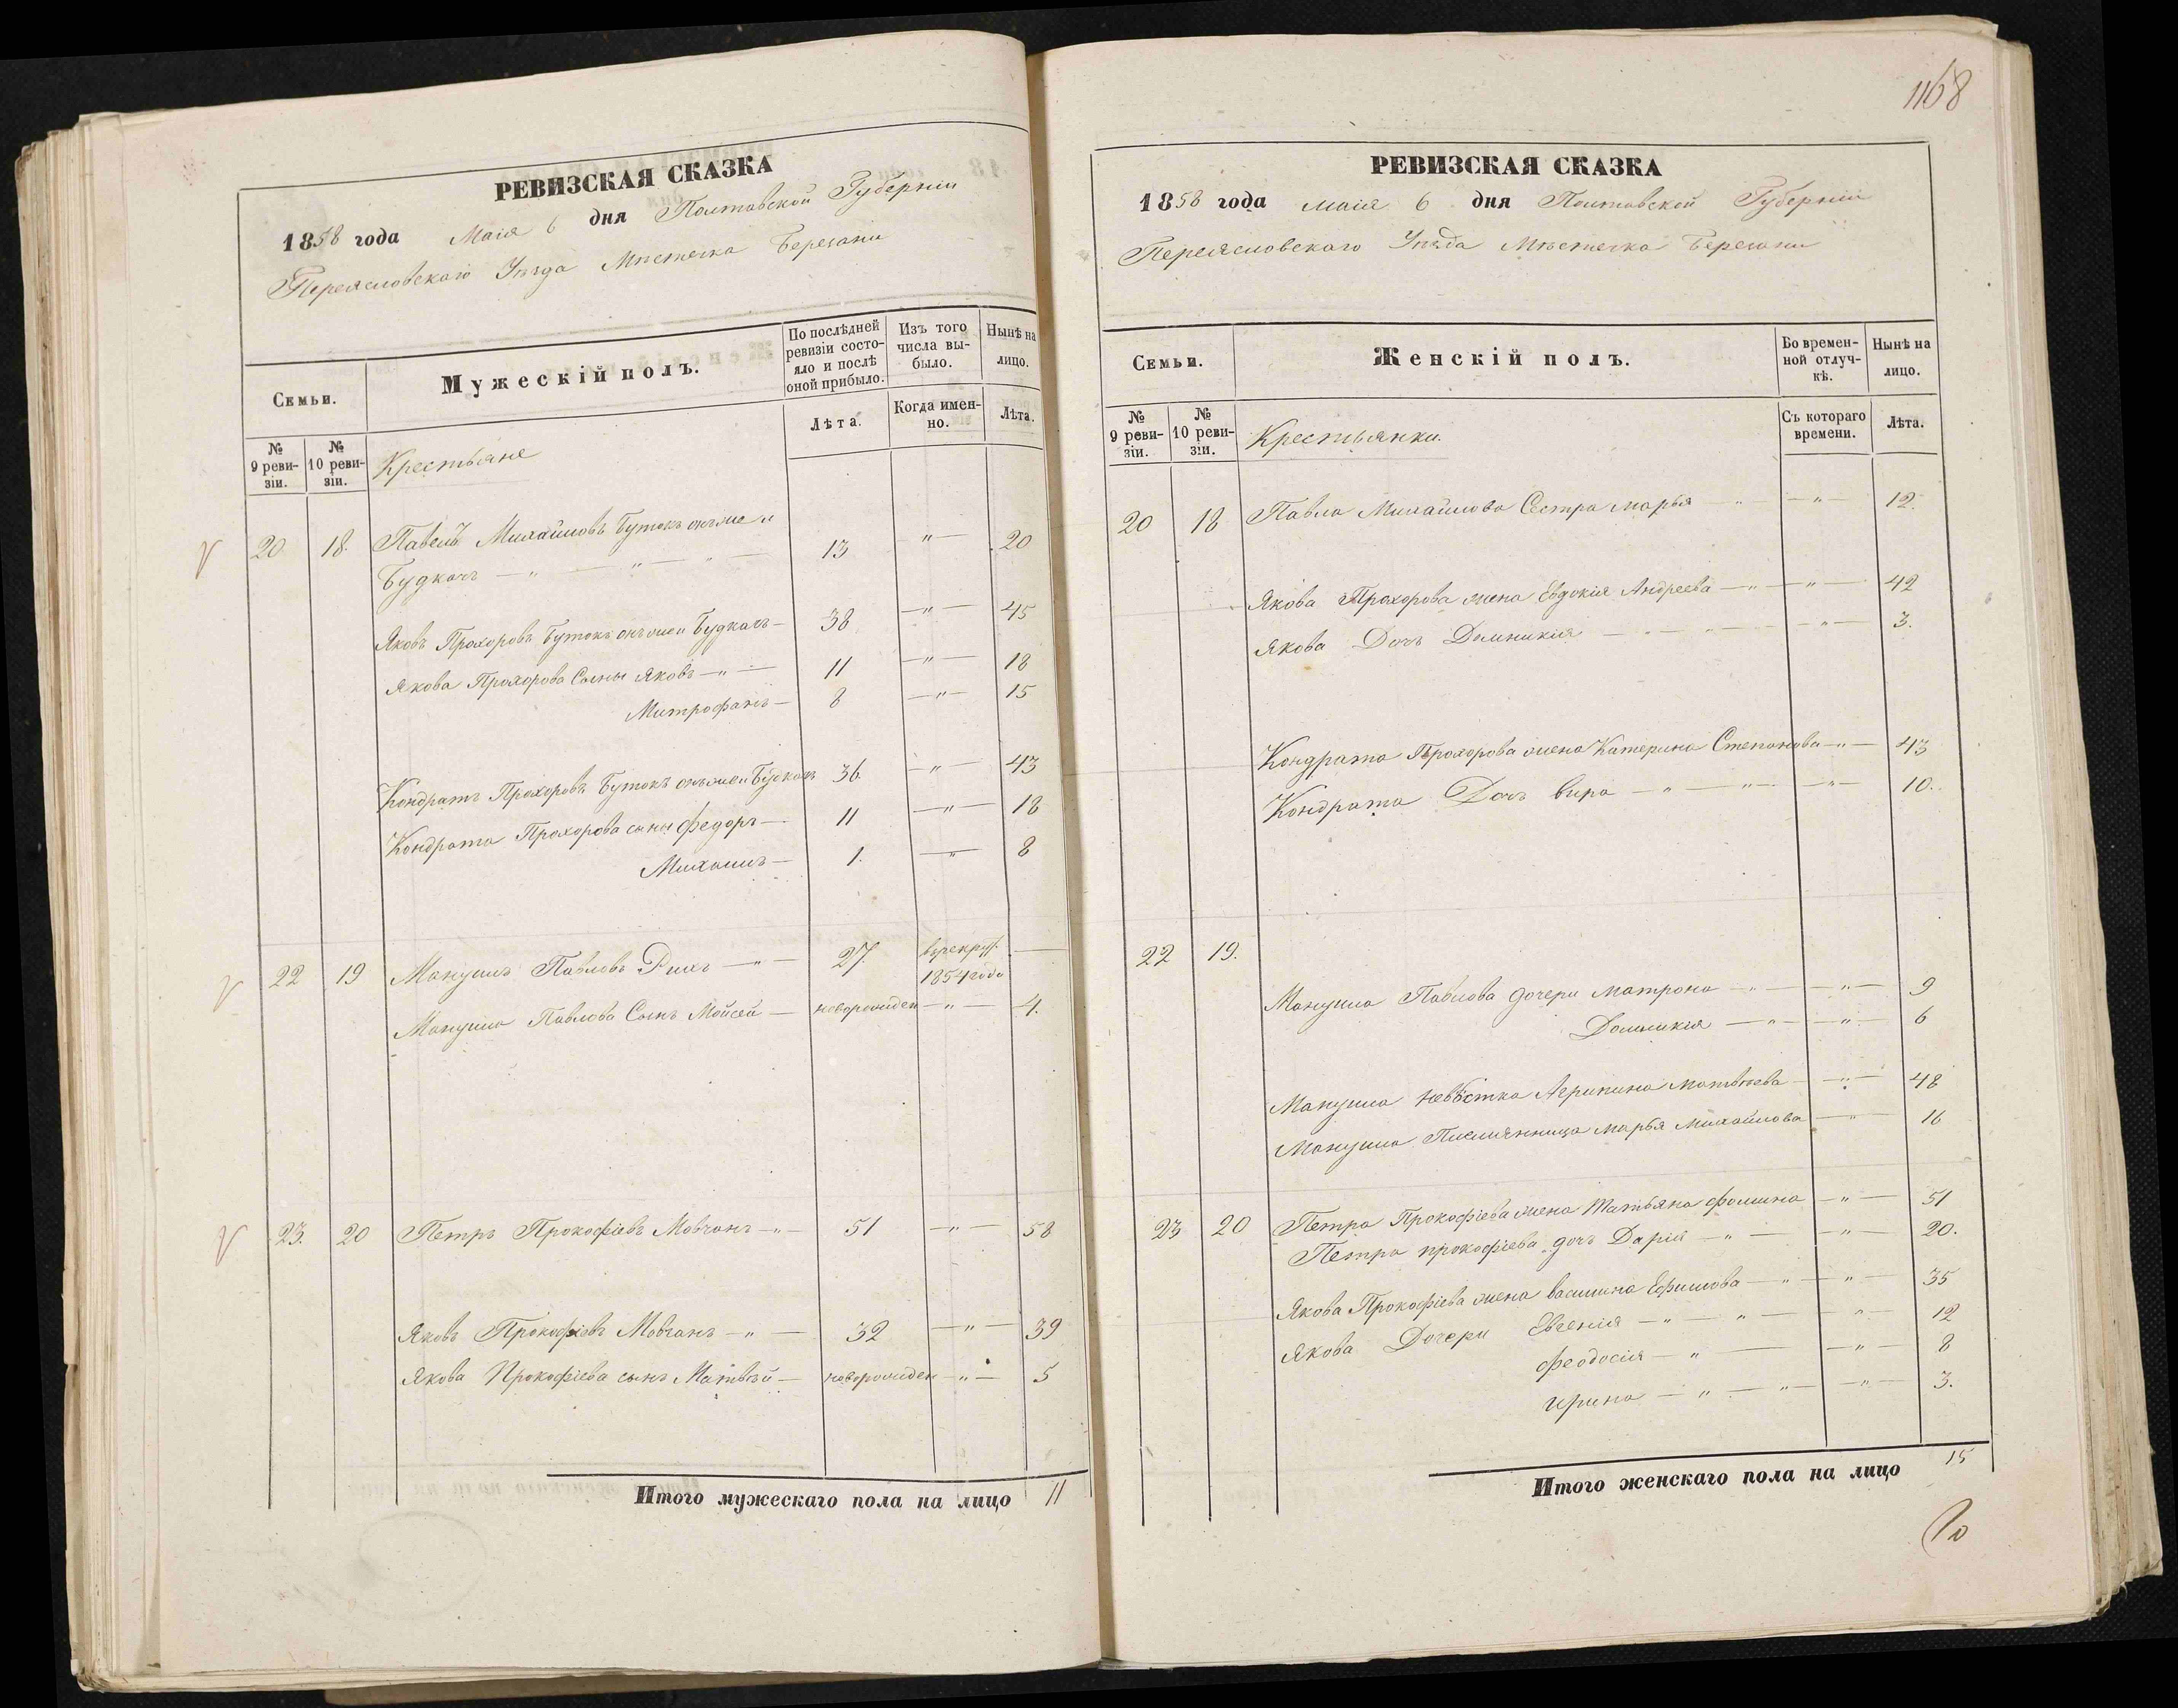 РЕВИЗСКАЯ СКАЗКА
1858 года Маія 6 дня Полтавской Губерніи
Переясловскаго Уѣзда Мѣстечка Березани
Семьи.
Мужескій полъ.
По послѣдней ревизіи состояло и послѣ оной прибыло.
Изъ того числа выбыло.
Нынѣ на лицо.
№ 9 ревизіи.
№ 10 ревизіи.
Лѣта.
Когда именно.
Лѣта.
Крестьяне
20 18. Павелъ Михайловъ Бутокъ онъ же и
Будкачъ — " — " — " — 13 " — 20
Яковъ Прохоровъ Бутокъ онъ же и Будкачъ — 38 — " — 45
Якова Прохорова Сыны Яковъ — " — 11 — " — 18
Митрофанъ — 8 — " — 15
Кондратъ Прохоровъ Бутокъ онъ же и Будкачъ 36. — " — 43
Кондрата Прохорова сыны Федоръ — 11 — " — 18
Михаилъ — 1. — " — 8
22 19 Мануилъ Павловъ — " — 27. врекрут. —
1854 года
Мануила Павлова Сынъ Мойсей — новорожден — " — 4.
23. 20 Петръ Прокофіевъ Мовчанъ — " 51 — " — 58
Яковъ Прокофіевъ Мовчанъ — " — 32 — " — 39
Якова Прокофіева сынъ Матвѣй — новорожден — " — 5
Итого мужескаго пола на лицо 11
1168
РЕВИЗСКАЯ СКАЗКА
1858 года маія 6 дня Полтавской Губерніи
Переясловскаго Уѣзда Мѣстечка Березани
Семьи.
Женскій полъ.
Во временной отлучкѣ.
Нынѣ на лицо.
№ 9 ревизіи.
№ 10 ревизіи.
Съ котораго времени.
Лѣта.
Крестьянки.
20 18 Павла Михайлова Сестра марья — " — " — 12.
Якова Прохорова жена Евдокія Андреева — " — " — 42
Якова Дочь Домникія — " — " — 3.
Кондрата Прохорова жена Катерина Степанова — " — 43
Кондрата Дочь вира — " — " — " — 10.
22 19.
Мануила Павлова дочери матрона — " — " — 9
Домникія — " — " — 6
Мануила невѣстка Агрипина матвѣева — " — 48
Мануила Племянница марья михайлова — " — 16
23 20 Петра Прокофіева жена Татьяна фомина — " — 51
Петра прокофіева дочь Дарія — " — " — 20.
Якова Прокофіева жена василина Ефимова — " — " — 35
Якова Дочери Евгенія — " — " — " — 12
феодосія — " — " — 8
ирина — " — " — " — 3.
Итого женскаго пола на лицо 15